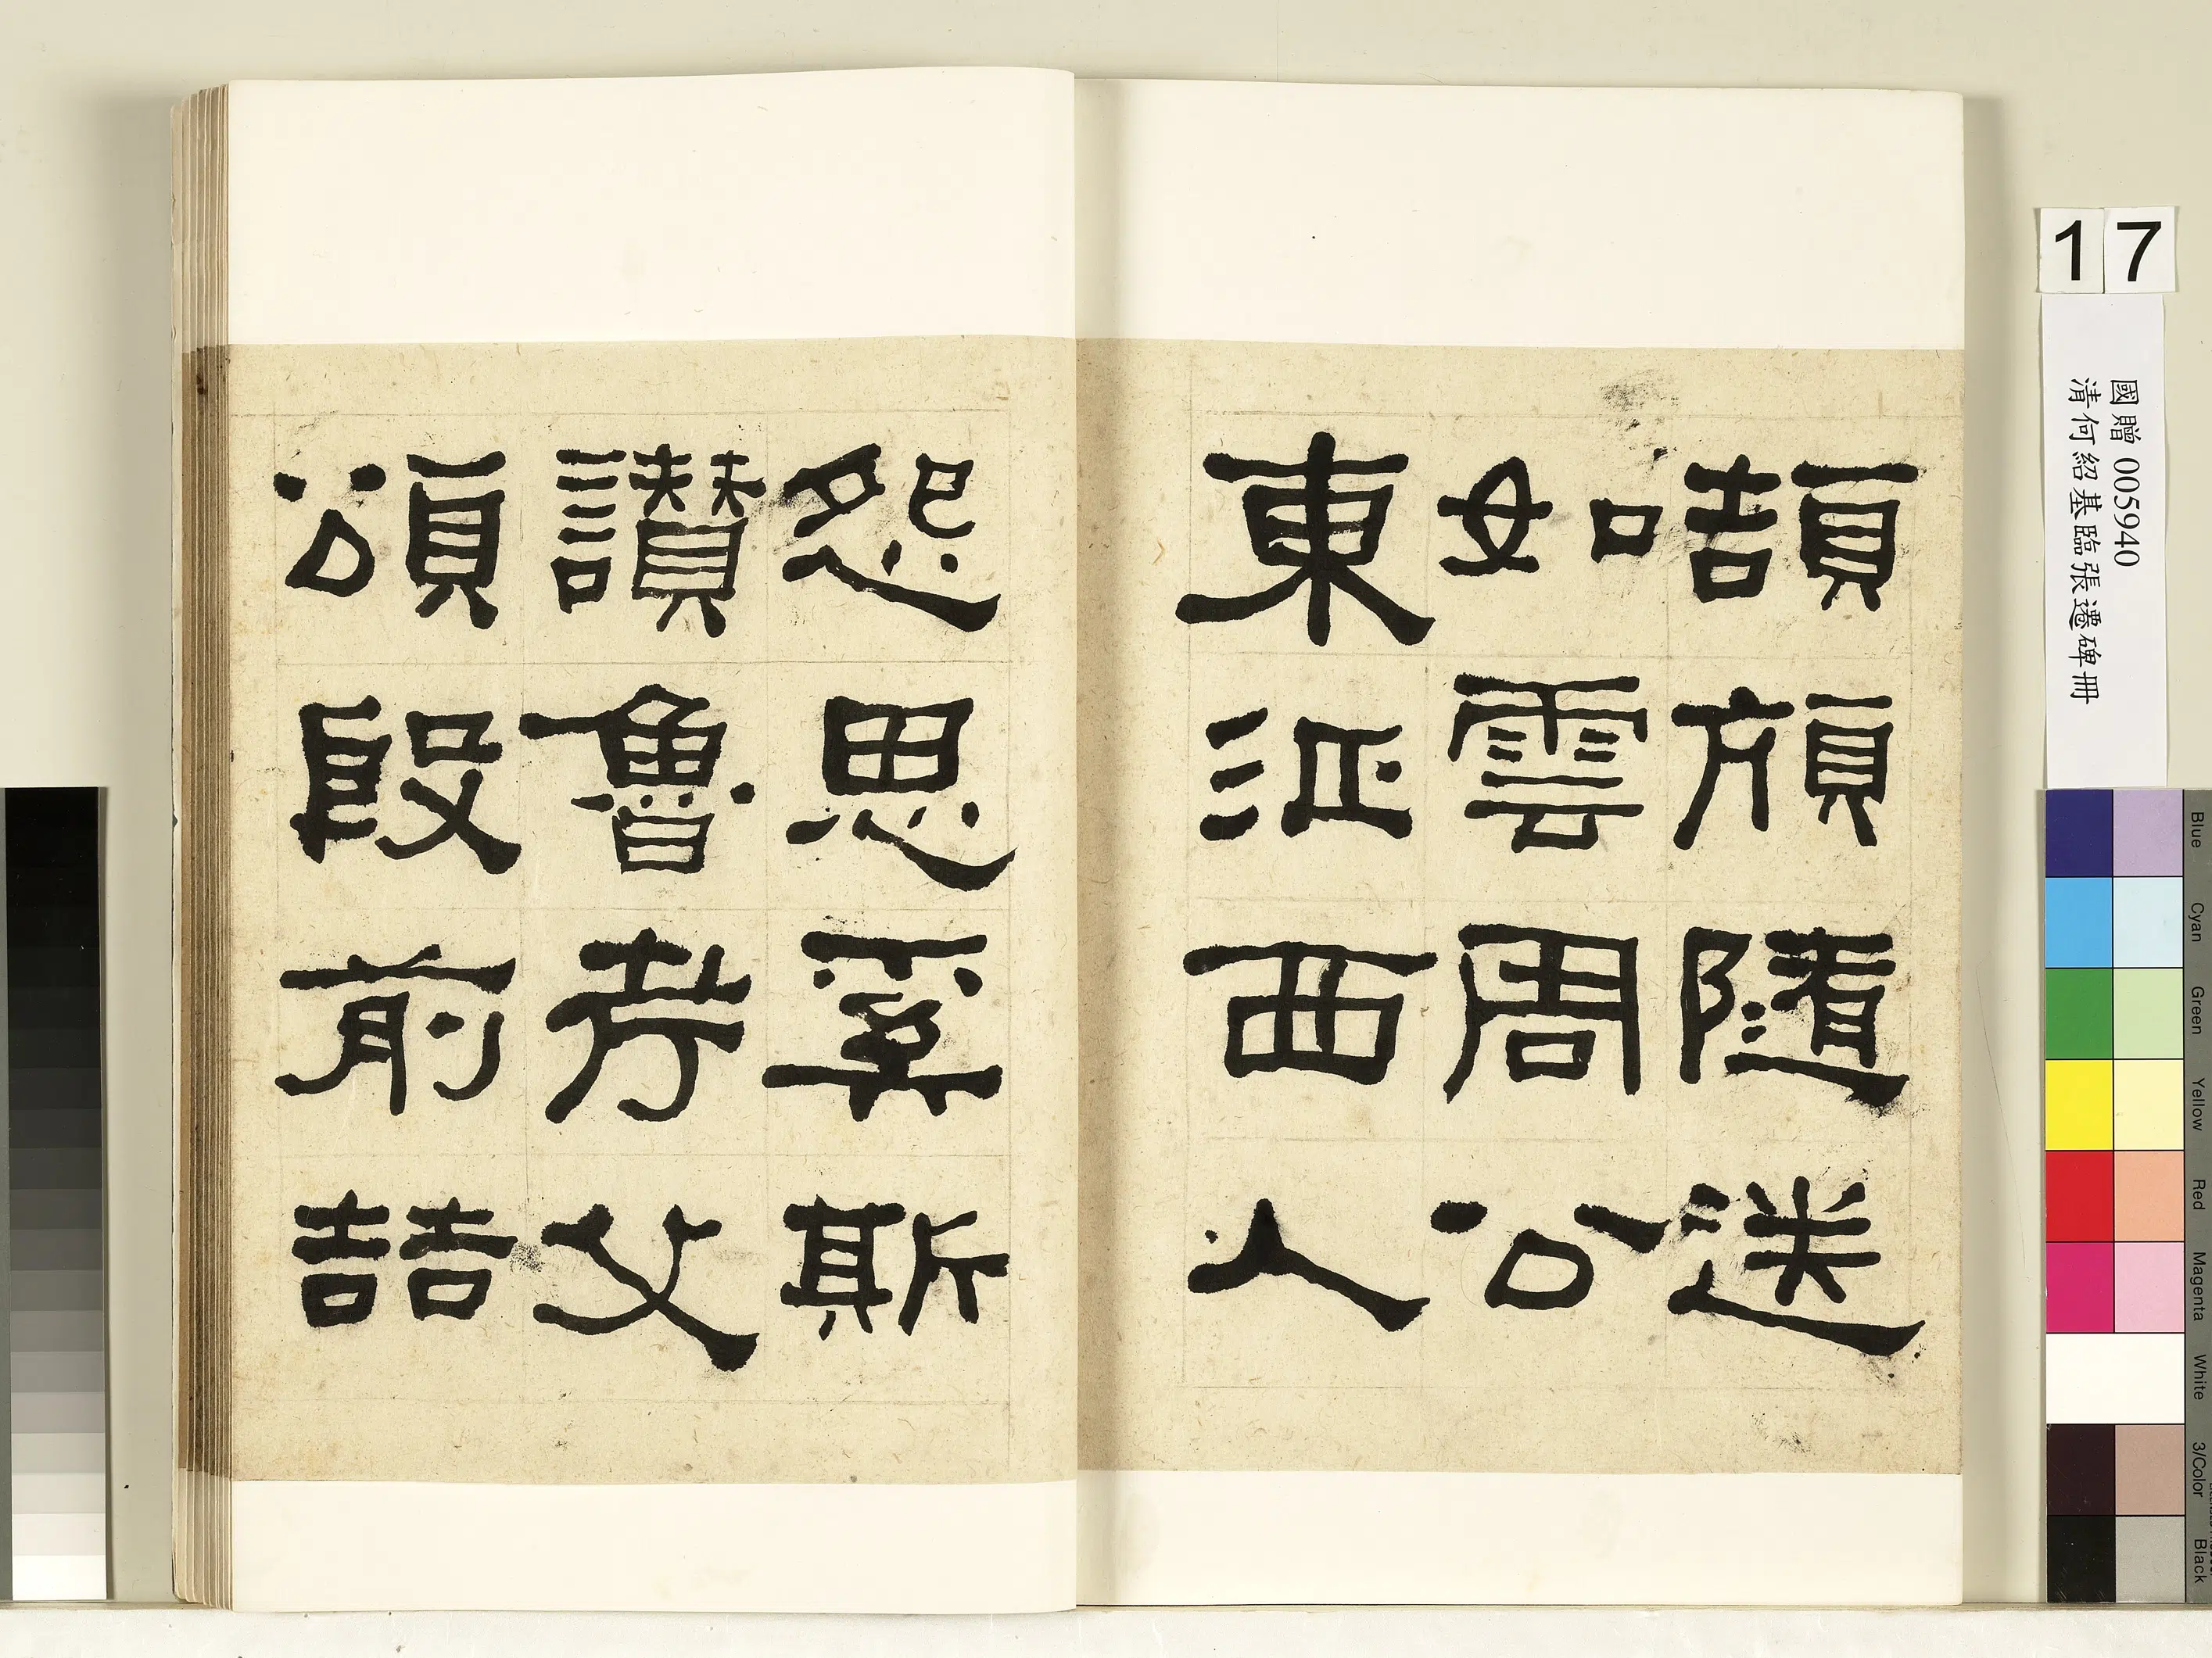 頡頏隨送
如雲周公
東征西人
怨思奚斯
讚魯考父
頌殷前喆
17
國贈 005940
清何紹基臨張遷碑冊
Blue
Cyan
Green
Yellow
Red
Magenta
White
3/Color
Black